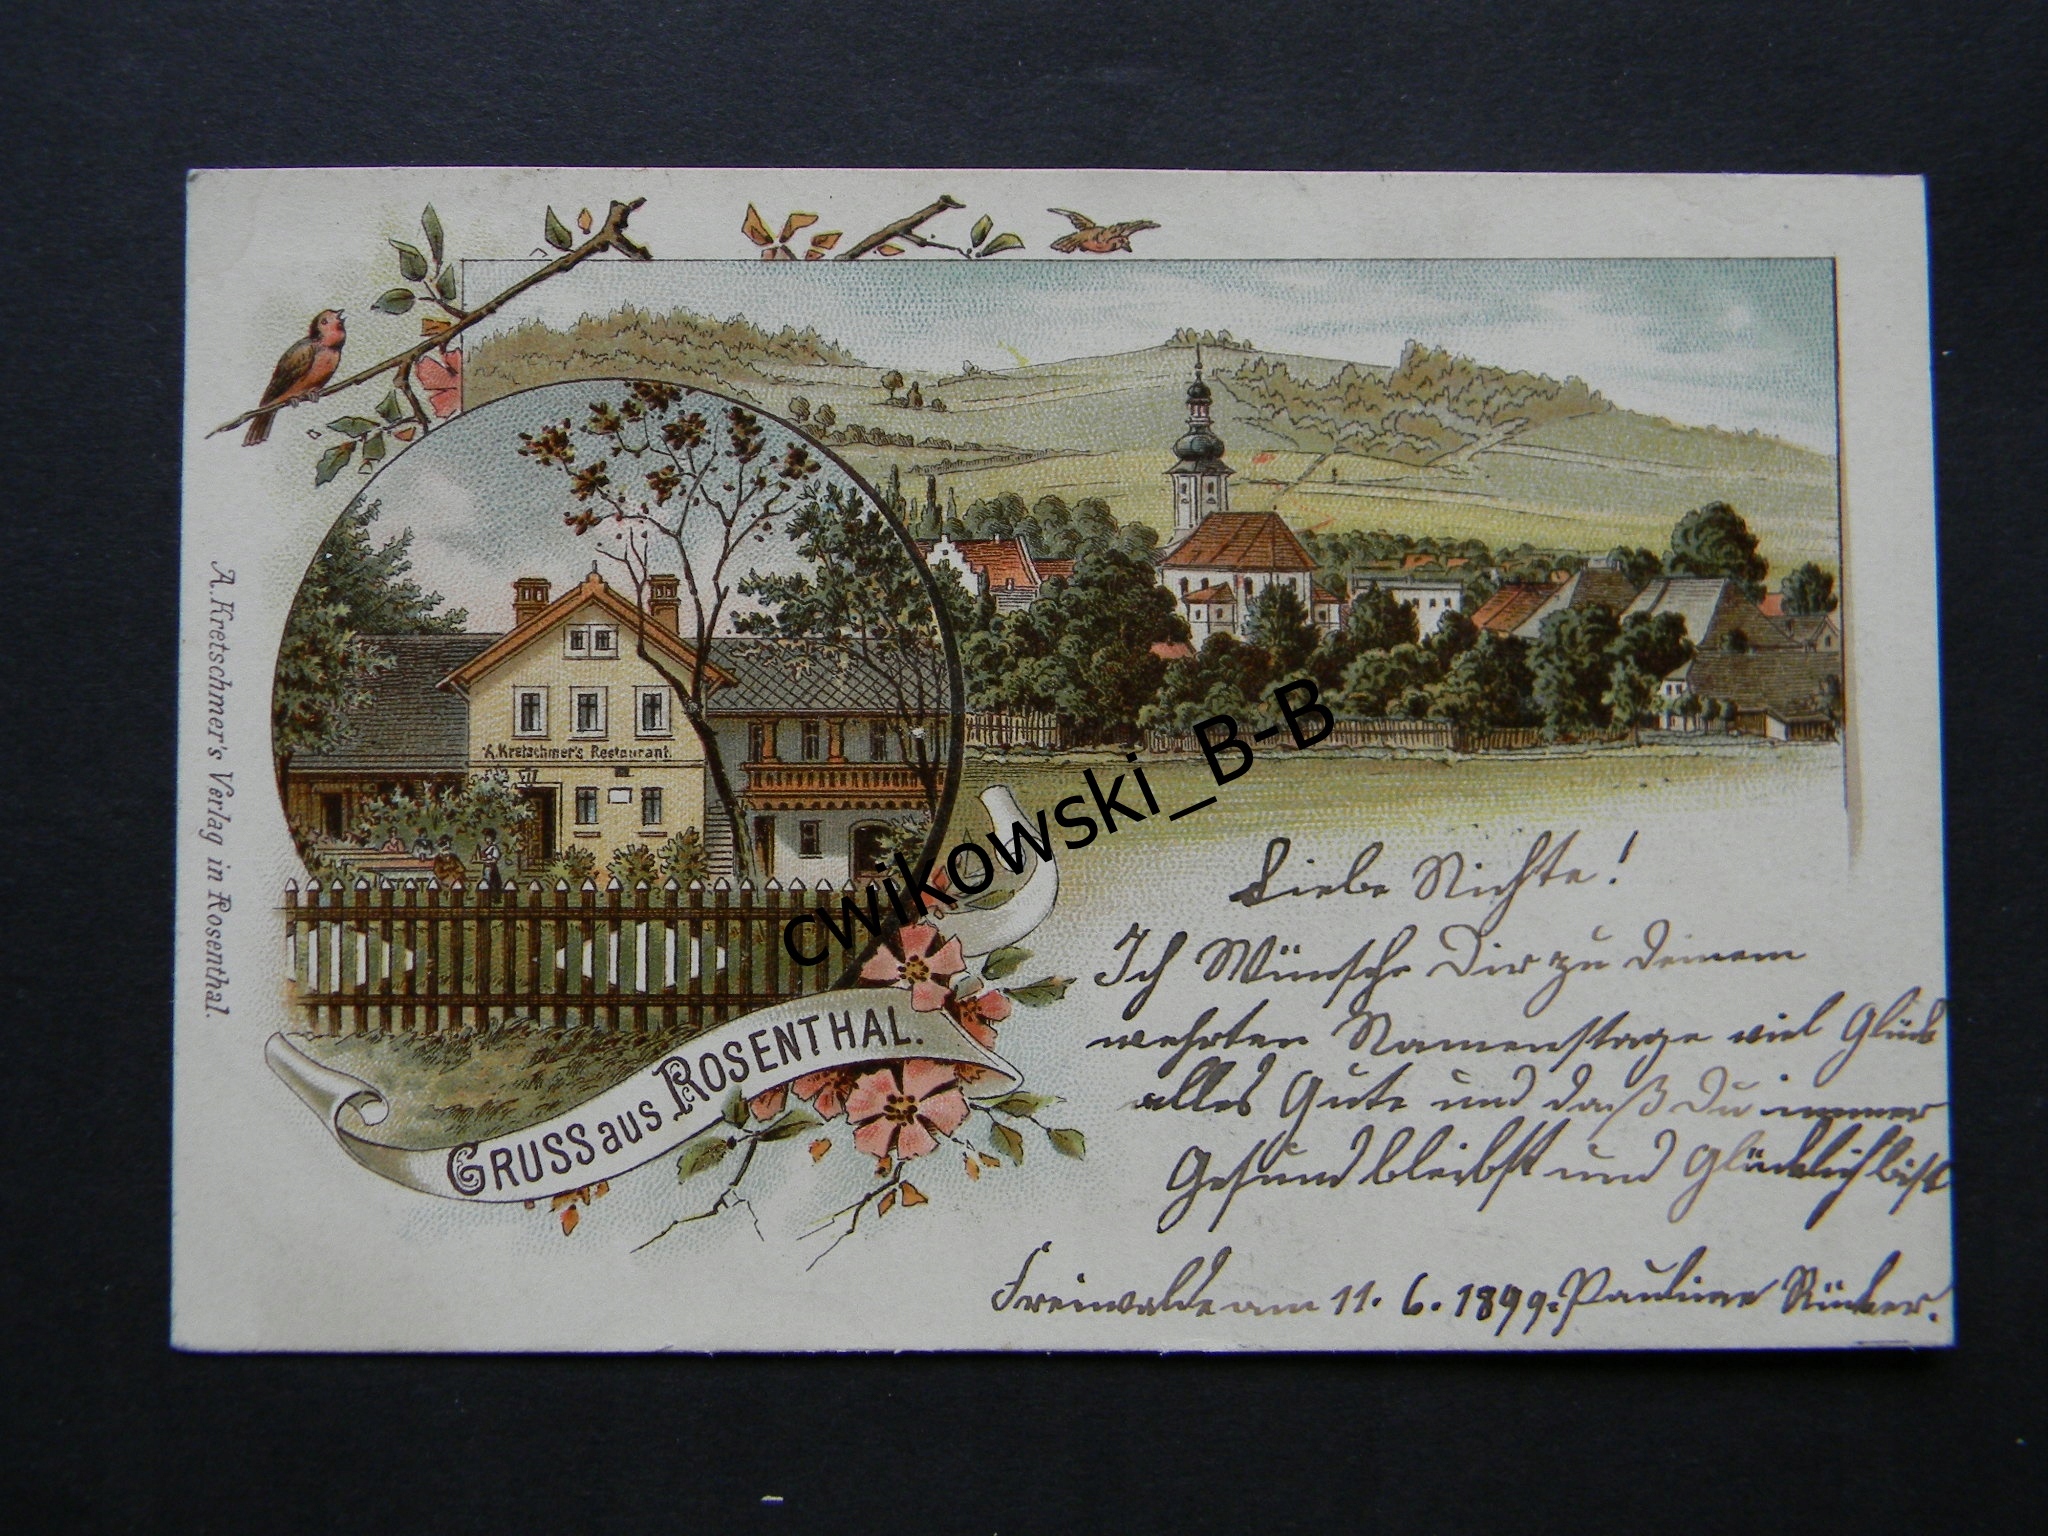 A. Kretschmer's Verlag in Rosenthal.
A. Kretschmer's Restaurant.
GRUSS aus ROSENTHAL.
cwikowski_B-B
Liebe Nichte!
Ich Wünsche Dir zu Deinem
wehrten Namenstage viel Glück
alles Gute und daß Du immer
Gesund bleibst und Glücklich bist
Freiwalde am 11. 6. 1899. Pauline Rücker.